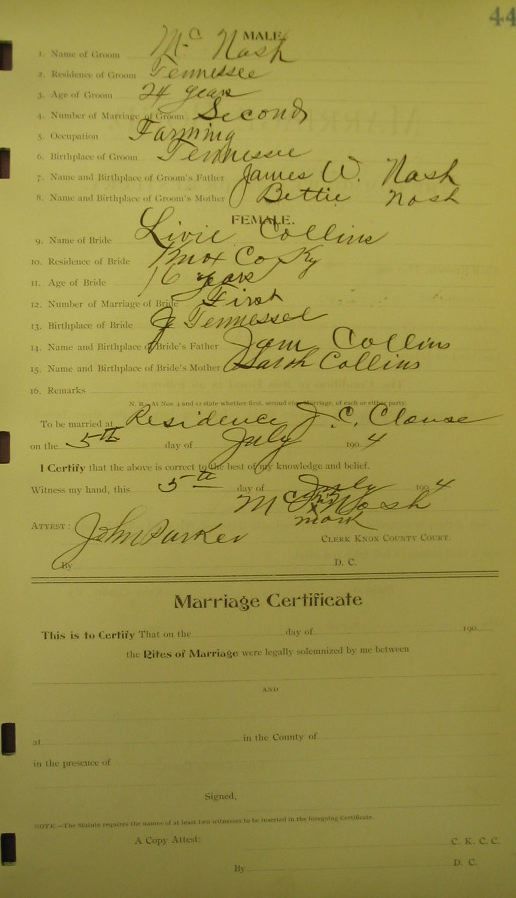 44
MALE.
1. Name of Groom Mc Nash
2. Residence of Groom Tennessee
3. Age of Groom 24 years
4. Number of Marriage of Groom Second
5. Occupation Farming
6. Birthplace of Groom Tennessee
7. Name and Birthplace of Groom's Father James W. Nash
8. Name and Birthplace of Groom's Mother Bettie Nash
FEMALE.
9. Name of Bride Livie Collins
10. Residence of Bride Knox Co Ky
11. Age of Bride 16 years
12. Number of Marriage of Bride First
13. Birthplace of Bride Tennessee
14. Name and Birthplace of Bride's Father Sam Collins
15. Name and Birthplace of Bride's Mother Sarah Collins
16. Remarks
N. B.—At Nos. 4 and 12 state whether first, second, etc., marriage, of each or either party.
To be married at Residence J. C. Clouse
on the 5th day of July 1904
I Certify that the above is correct to the best of my knowledge and belief.
Witness my hand, this 5th day of July 1904
Mc his x Nash
mark
ATTEST: John Parker CLERK KNOX COUNTY COURT.
By D. C.
Marriage Certificate
This is to Certify That on the day of 190
the Rites of Marriage were legally solemnized by me between
AND
at in the County of
in the presence of
Signed,
NOTE.—The Statute requires the names of at least two witnesses to be inserted in the foregoing Certificate.
A Copy Attest: C. K. C. C.
By D. C.